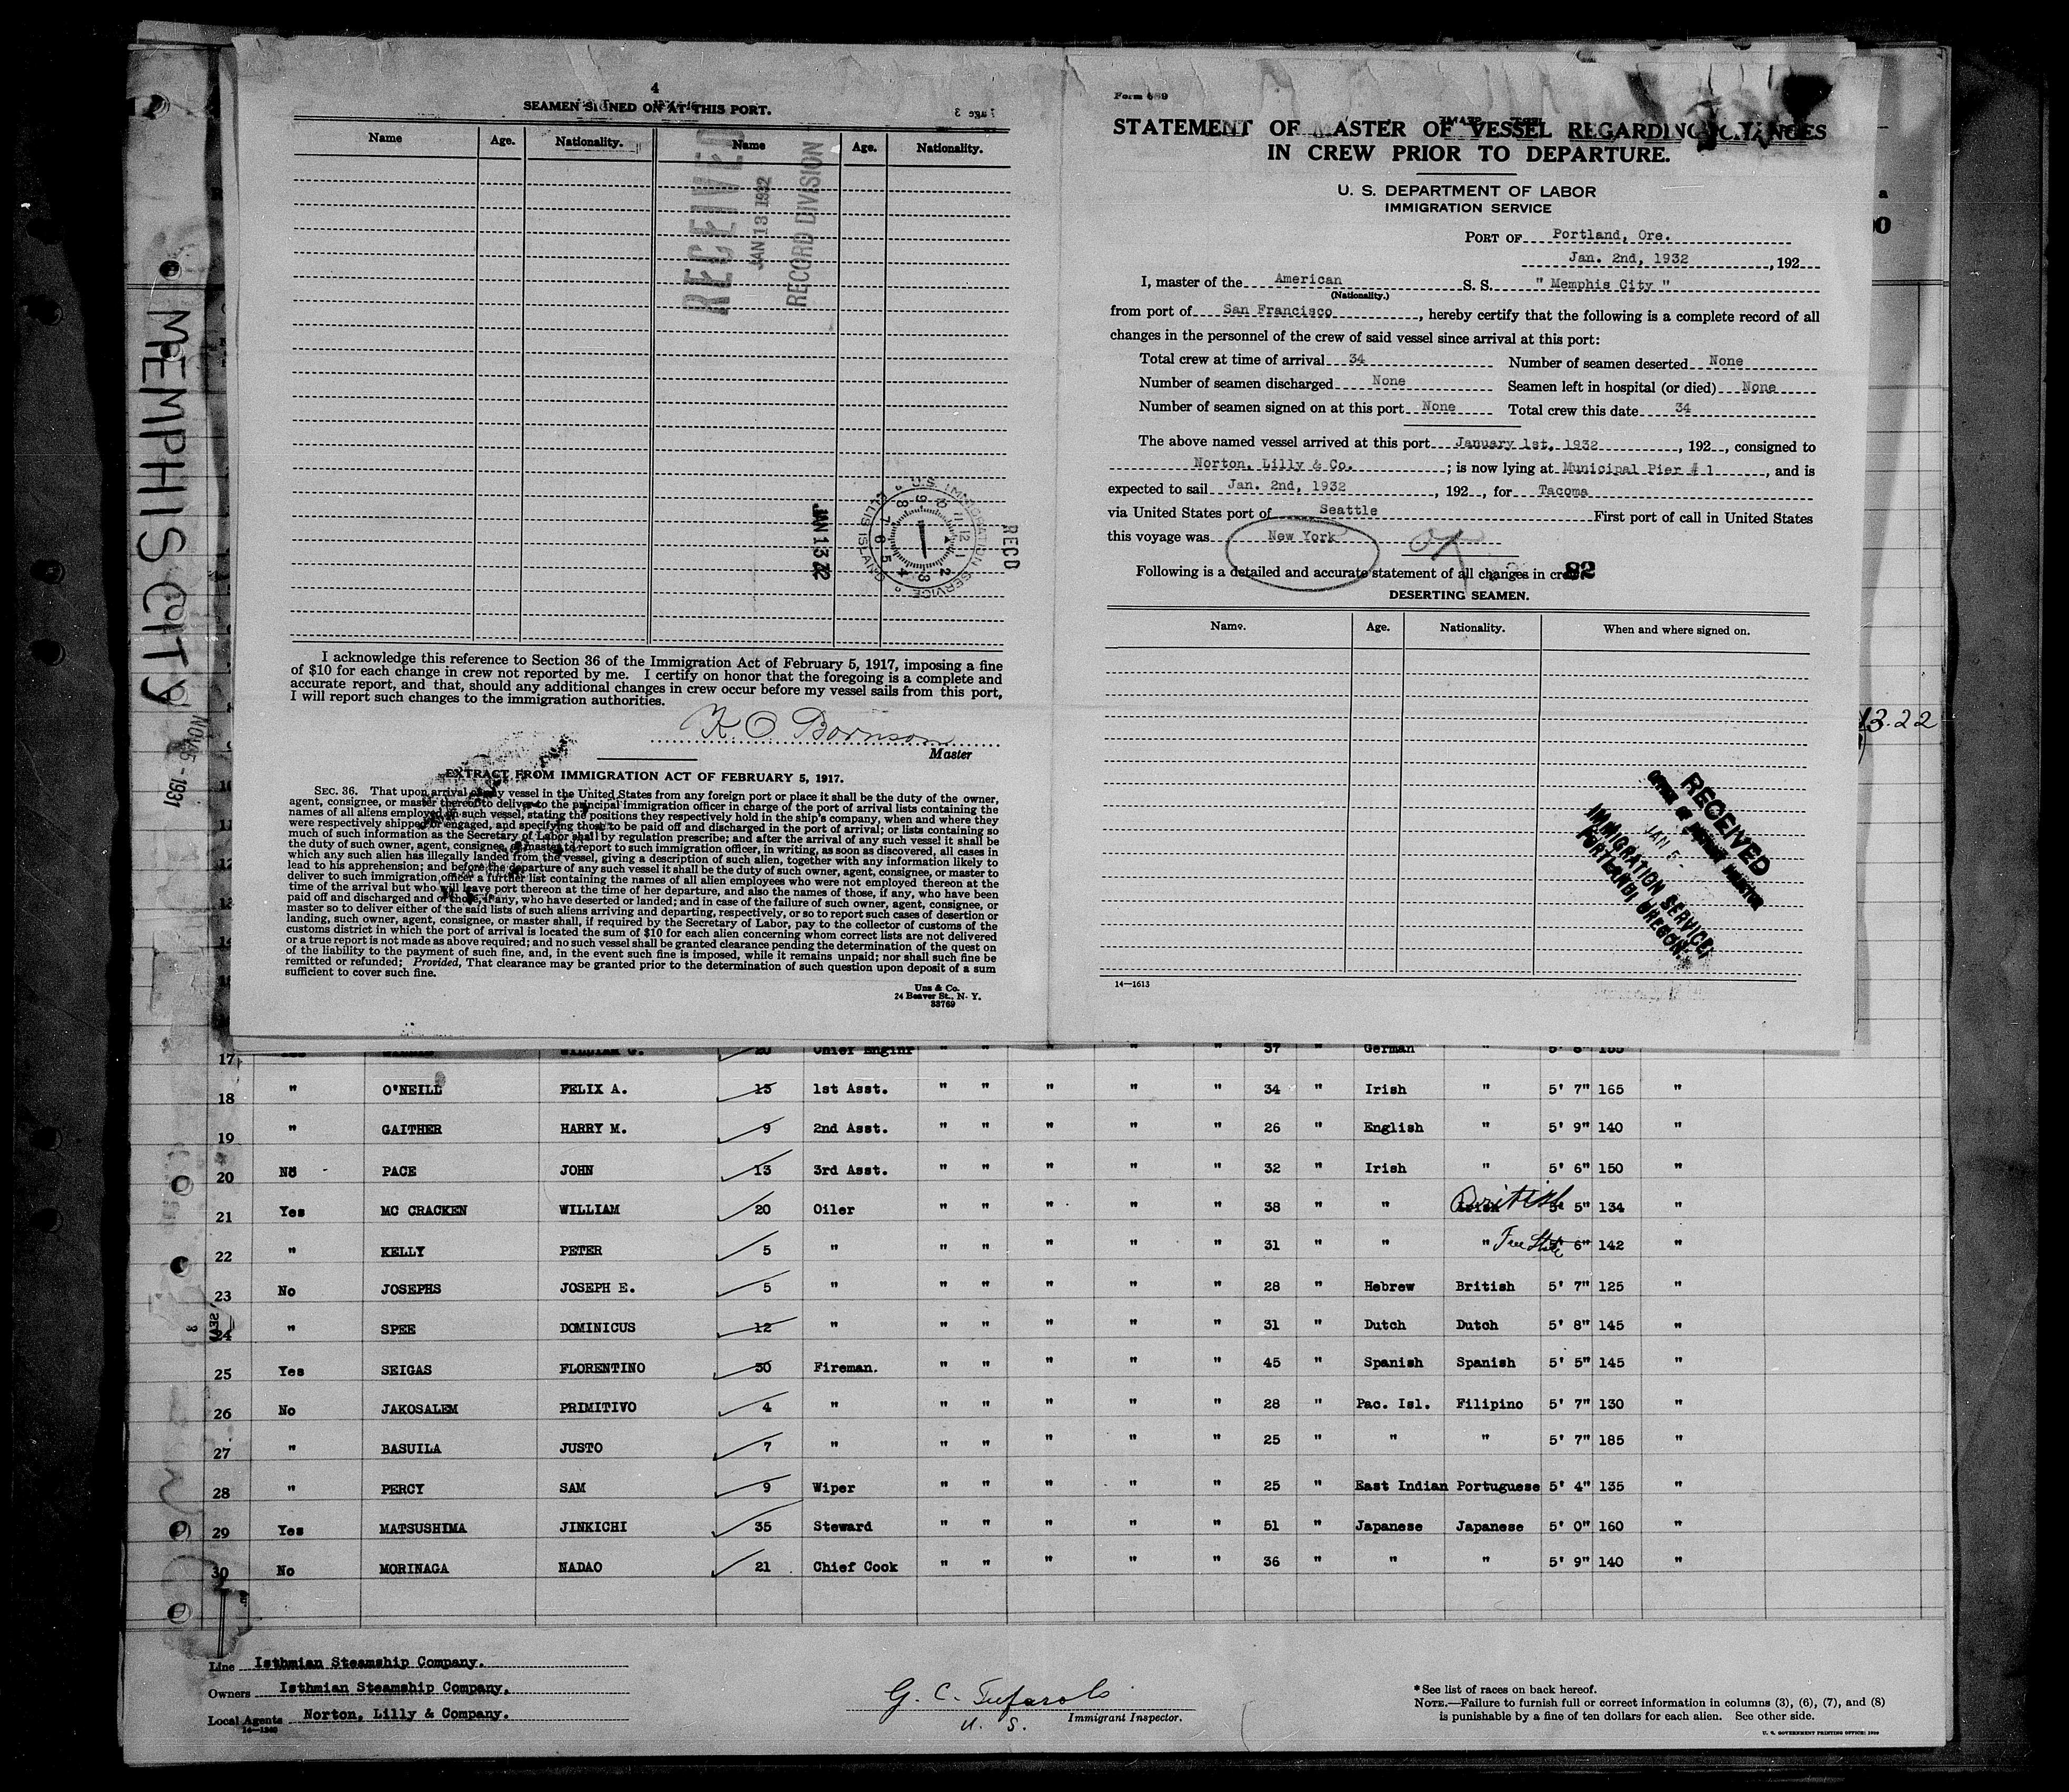 MEMPHIS CITY
NOV 5 - 1931
4
SEAMEN SIGNED ON AT THIS PORT.
Page 3
Name Age. Nationality. Name Age. Nationality.
RECEIVED
JAN 13 1932
RECORD DIVISION
JAN 13 32
U.S. IMMIGRATION SERVICE
ELLIS ISLAND
RECD
I acknowledge this reference to Section 36 of the Immigration Act of February 5, 1917, imposing a fine
of $10 for each change in crew not reported by me. I certify on honor that the foregoing is a complete and
accurate report, and that, should any additional changes in crew occur before my vessel sails from this port,
I will report such changes to the immigration authorities.
Master
EXTRACT FROM IMMIGRATION ACT OF FEBRUARY 5, 1917.
SEC. 36. That upon arrival of any vessel in the United States from any foreign port or place it shall be the duty of the owner,
agent, consignee, or master thereof to deliver to the principal immigration officer in charge of the port of arrival lists containing the
names of all aliens employed on such vessel, stating the positions they respectively hold in the ship's company, when and where they
were respectively shipped or engaged, and specifying those to be paid off and discharged in the port of arrival; or lists containing so
much of such information as the Secretary of Labor shall by regulation prescribe; and after the arrival of any such vessel it shall be
the duty of such owner, agent, consignee, or master to report to such immigration officer, in writing, as soon as discovered, all cases in
which any such alien has illegally landed from the vessel, giving a description of such alien, together with any information likely to
lead to his apprehension; and before the departure of any such vessel it shall be the duty of such owner, agent, consignee, or master to
deliver to such immigration officer a further list containing the names of all alien employees who were not employed thereon at the
time of the arrival but who will leave port thereon at the time of her departure, and also the names of those, if any, who have been
paid off and discharged and of those, if any, who have deserted or landed; and in case of the failure of such owner, agent, consignee, or
master so to deliver either of the said lists of such aliens arriving and departing, respectively, or so to report such cases of desertion or
landing, such owner, agent, consignee, or master shall, if required by the Secretary of Labor, pay to the collector of customs of the
customs district in which the port of arrival is located the sum of $10 for each alien concerning whom correct lists are not delivered
or a true report is not made as above required; and no such vessel shall be granted clearance pending the determination of the quest on
of the liability to the payment of such fine, and, in the event such fine is imposed, while it remains unpaid; nor shall such fine be
remitted or refunded; Provided, That clearance may be granted prior to the determination of such question upon deposit of a sum
sufficient to cover such fine.
Unz & Co.
24 Beaver St., N. Y.
33769
Form 689
STATEMENT OF MASTER OF VESSEL REGARDING CHANGES
IN CREW PRIOR TO DEPARTURE.
U. S. DEPARTMENT OF LABOR
IMMIGRATION SERVICE
PORT OF Portland, Ore.
Jan. 2nd, 1932 , 192
I, master of the American S. S. " Memphis City "
(Nationality.)
from port of San Francisco , hereby certify that the following is a complete record of all
changes in the personnel of the crew of said vessel since arrival at this port:
Total crew at time of arrival 34 Number of seamen deserted None
Number of seamen discharged None Seamen left in hospital (or died) None
Number of seamen signed on at this port None Total crew this date 34
The above named vessel arrived at this port January 1st, 1932 , 192 , consigned to
Norton, Lilly & Co. ; is now lying at Municipal Pier # 1 , and is
expected to sail Jan. 2nd, 1932 , 192 , for Tacoma
via United States port of Seattle First port of call in United States
this voyage was New York
Following is a detailed and accurate statement of all changes in cre 82
DESERTING SEAMEN.
Name. Age. Nationality. When and where signed on.
RECEIVED
OFFICE OF DISTRICT DIRECTOR
JAN 5 -
IMMIGRATION SERVICE
PORTLAND, OREGON
14—1613
13.22
17 20 Chief Enginr " " " " " 37 German "
18 " O'NEILL FELIX A. 13 1st Asst. " " " " " 34 " Irish " 5' 7" 165 "
19 " GAITHER HARRY M. 9 2nd Asst. " " " " " 26 " English " 5' 9" 140 "
20 No PACE JOHN 13 3rd Asst. " " " " " 32 " Irish " 5' 6" 150 "
21 Yes MC CRACKEN WILLIAM 20 Oiler " " " " " 38 " " British 5' 5" 134 "
22 " KELLY PETER 5 " " " " " " 31 " " " Free State 5' 6" 142 "
23 No JOSEPHS JOSEPH E. 5 " " " " " " 28 " Hebrew British 5' 7" 125 "
24 " SPEE DOMINICUS 12 " " " " " " 31 " Dutch Dutch 5' 8" 145 "
25 Yes SEIGAS FLORENTINO 30 Fireman. " " " " " 45 " Spanish Spanish 5' 5" 145 "
26 No JAKOSALEM PRIMITIVO 4 " " " " " " 28 " Pac. Isl. Filipino 5' 7" 130 "
27 " BASUILA JUSTO 7 " " " " " " 25 " " " 5' 7" 185 "
28 " PERCY SAM 9 Wiper " " " " " 25 " East Indian Portuguese 5' 4" 135 "
29 Yes MATSUSHIMA JINKICHI 35 Steward " " " " " 51 " Japanese Japanese 5' 0" 160 "
30 No MORINAGA NADAO 21 Chief Cook " " " " " 36 " " " 5' 9" 140 "
Line Isthmian Steamship Company.
Owners Isthmian Steamship Company.
Local Agents Norton, Lilly & Company.
14—1240
U. S. Immigrant Inspector.
* See list of races on back hereof.
NOTE.—Failure to furnish full or correct information in columns (3), (6), (7), and (8)
is punishable by a fine of ten dollars for each alien. See other side.
U. S. GOVERNMENT PRINTING OFFICE: 1930